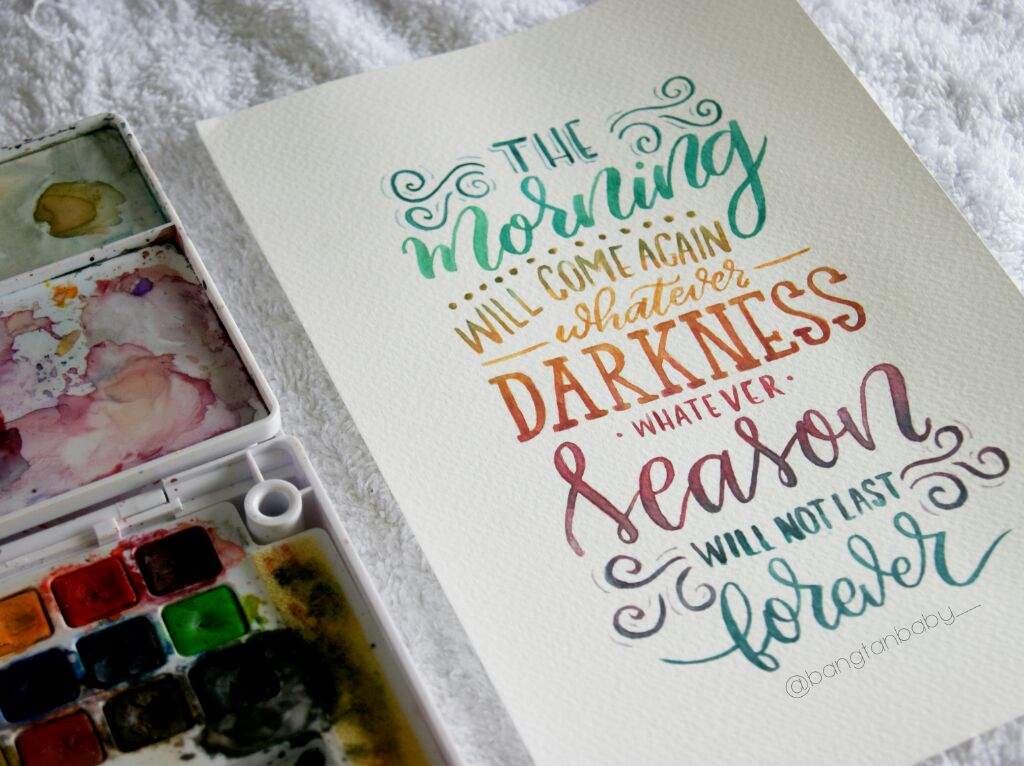 THE
morning
WILL COME AGAIN
whatever
DARKNESS
· WHATEVER ·
season
WILL NOT LAST
forever
@bangtanbaby__